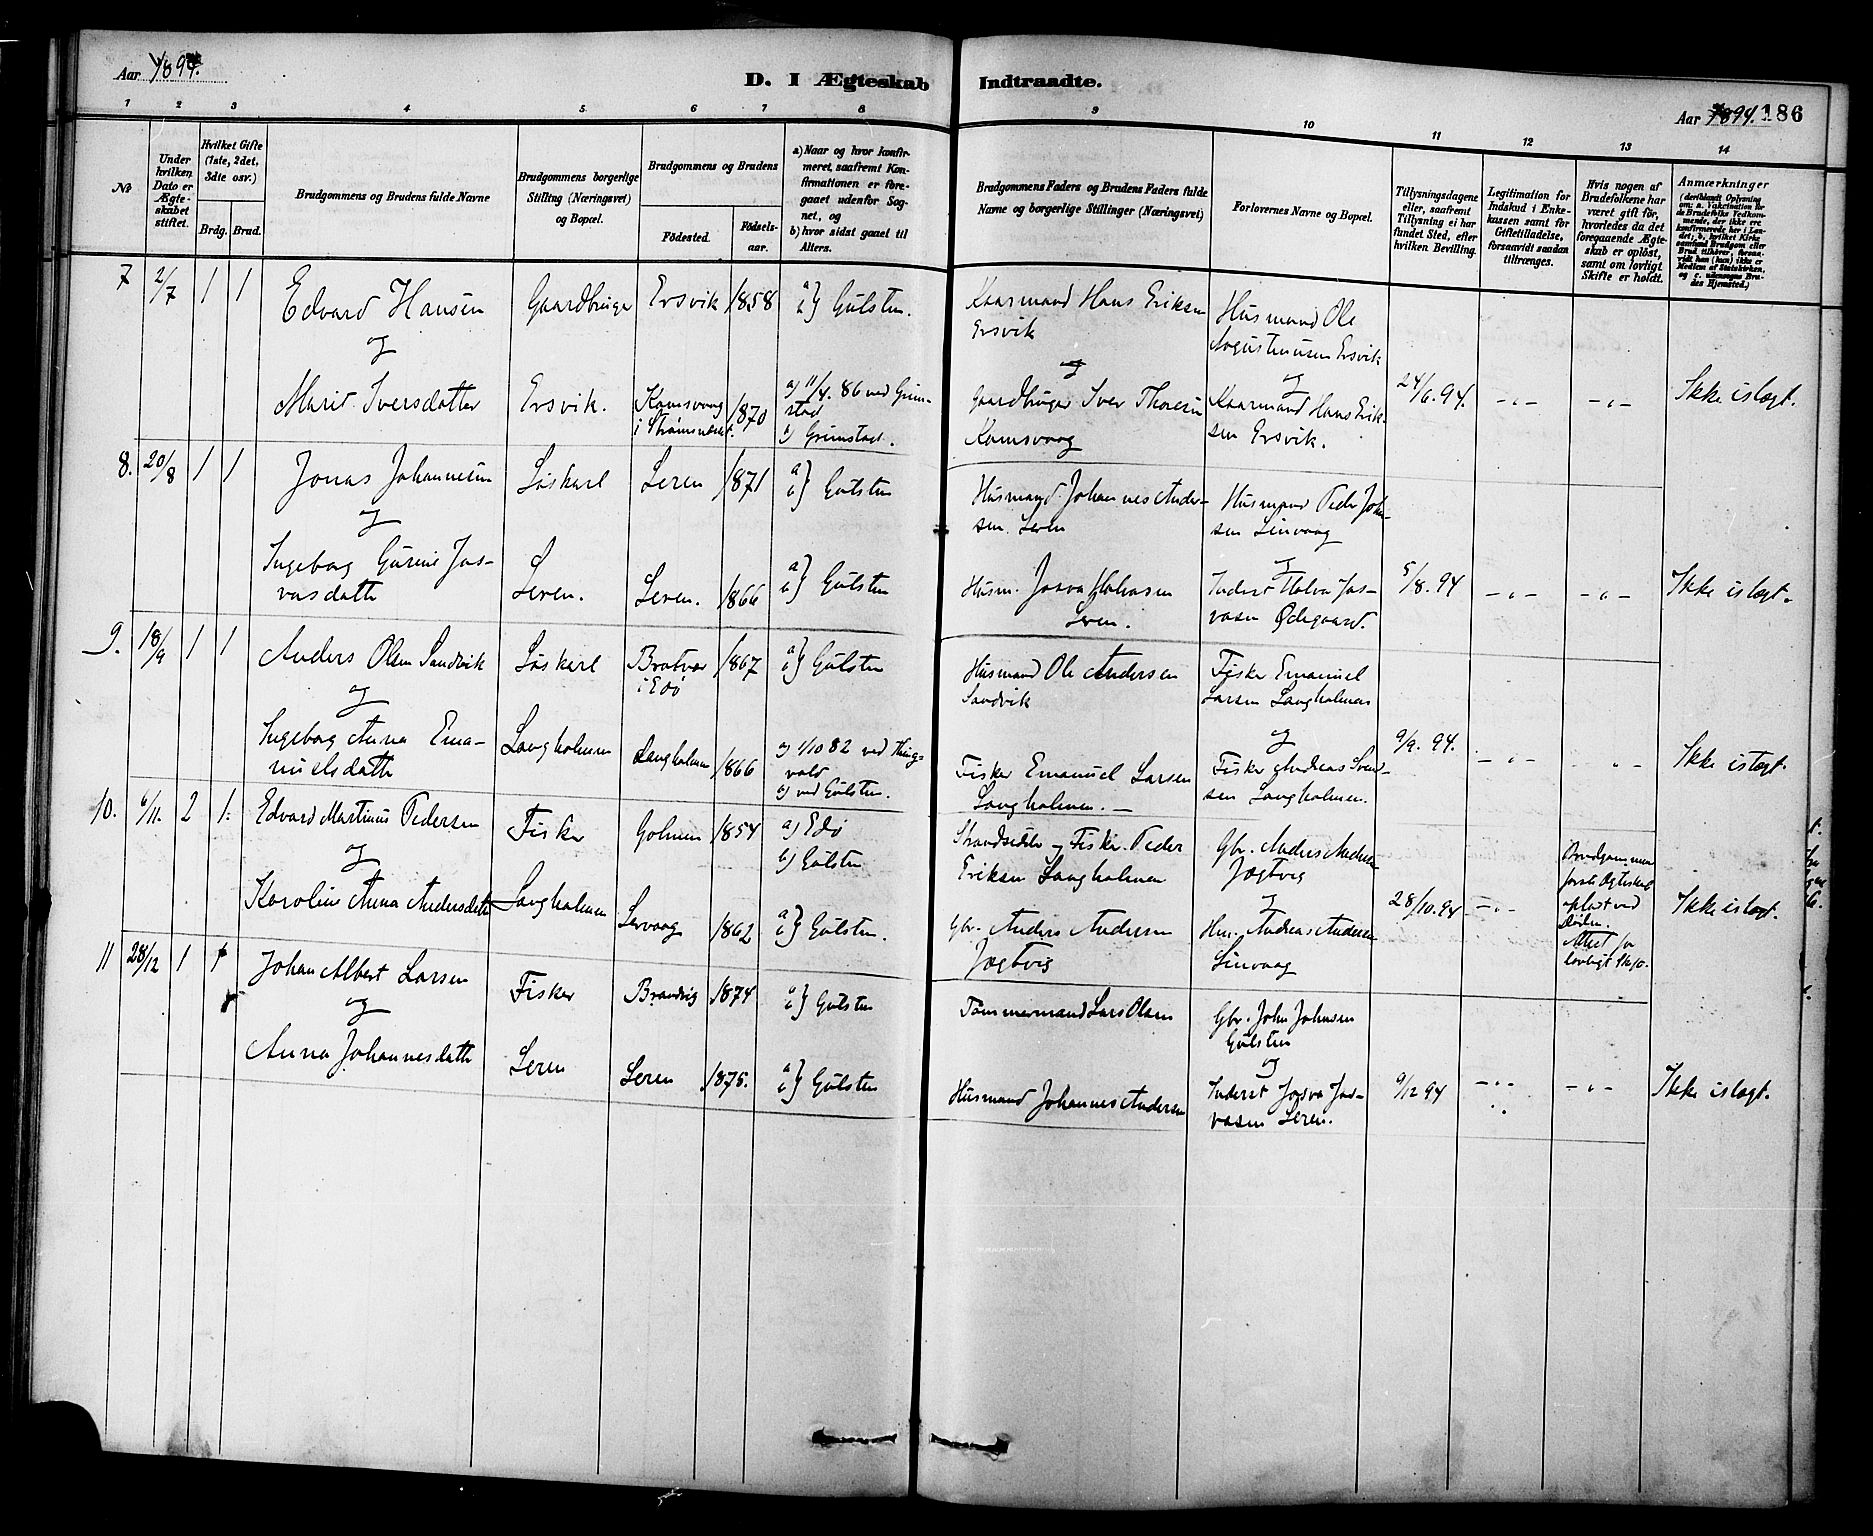 Aar 1894.
D. I Ægteskab Indtraadte.
Aar 1894. 186
1 2 3 4 5 6 7 8 9 10 11 12 13 14
No
Under hvilken Dato er Ægte-skabet stiftet.
Hvilket Gifte (1ste, 2det, 3die osv.)
Brdg. Brud.
Brudgommens og Brudens fulde Navne
Brudgommens borgerlige Stilling (Næringsvei) og Bopæl.
Brudgommens og Brudens
Födested.
Födsels-aar.
a) Naar og hvor konfir-meret, saafremt Kon-firmationen er fore-gaaet udenfor Sog-net, og
b) hvor sidst gaaet til Alters.
Brudgommens Faders og Brudens Faders fulde Navne og borgerlige Stillinger (Næringsvei)
Forlovernes Navne og Bopæl.
Tillysningsdagene eller, saafremt Tillysning ei har fundet Sted, efter hvilken Bevilling.
Legitimation for Indskud i Enke-kassen samt for Giftetilladelse, forsaavidt saadan tiltrænges.
Hvis nogen af Brudefolkene har været gift før, hvorledes da det foregaaende Ægte-skab er oplöst, samt om lovligt Skifte er holdt.
Anmærkninger
7 2/7 1 1
Edvard Hansen
og
Marit Iversdatter
Gaardbruger
Ersvik.
Ersvik 1858
Ramsvaag
1870
a) b) Gulsten.
a) 11/4. 86 ved Grim-
stad
b) Grimstad.
Kaarmand Hans Eriksen
Ersvik
og
Gaardbruger Iver Thoresen
Ramsvaag
Husmand Ole
Augustinusen Ersvik
og
Kaarmand Hans Erik-
sen Ersvik.
24/6. 94.
- „ -
- „ -
Ikke i slægt.
8. 20/8 1 1
Jonas Johannesen
og
Ingeborg Gurine Jos-
vasdatte
Løskarl
Leren.
Leren 1871
Leren. 1866
a) b) Gulsten
a) b) Gulsten
Husmand Johannes Ander-
sen Leren
Husm. Josva
Leren.
Husmand Peder Joh-
sen Linvaag
og
Inderst Jos-
vasen Ødegaard.
5/8. 94
- „ -
- „ -
Ikke i slægt.
9. 18/9 1 1
Anders Olsen Sandvik
og
Ingeborg Anna Ema-
nuelsdatte
Løskarl
Langholmen
Bratvær
i Edø
1867
Langholmen 1866
a) b) Gulsten
a) 1/10 82 ved Things
vold
b) ved Gulsten.
Husmand Ole Andersen
Sandvik
Fisker Emanuel Larsen
Langholmen. —
Fisker Emanuel
Larsen Langholmen
og
Fisker Andreas Svend-
sen Langholmen.
9/9. 94.
- „ -
„ -
Ikke i slægt.
10. 6/11. 2 1.
Edvard Martinus Pedersen
og
Karoline Anna Andersdatte
Fisker
Langholmen
Golmen 1854
Lervaag 1862
a) Edø
b) Gulsten
a) b) Gulsten.
Strandsidder og Fisker Peder
Eriksen Langholmen
Gbr. Anders Andersen
Jægtvig
Gbr. Anders Andersen
Jægtvig
og
Hm. Andreas Andersen
Linvaag
28/10. 94
- „ -
Brudgommens
første Ægteskab
opløst ved
Døden.
Attest for
lovligt Skifte.
Ikke i slægt.
11 28/12 1 1
Johan Albert Larsen
og
Anna Johannesdatte
Fisker
Leren
Brandvig 1874
Leren 1875.
a) b) Gulsten
a) b) Gulsten
Tømmermand Lars Olsen
Husmand Johannes Andersen
Gbr. John Johnsen
Gulsten
og
Inderst Josva Jos-
vasen Leren.
9/12 94
- „ -
- „ -
Ikke i slægt.